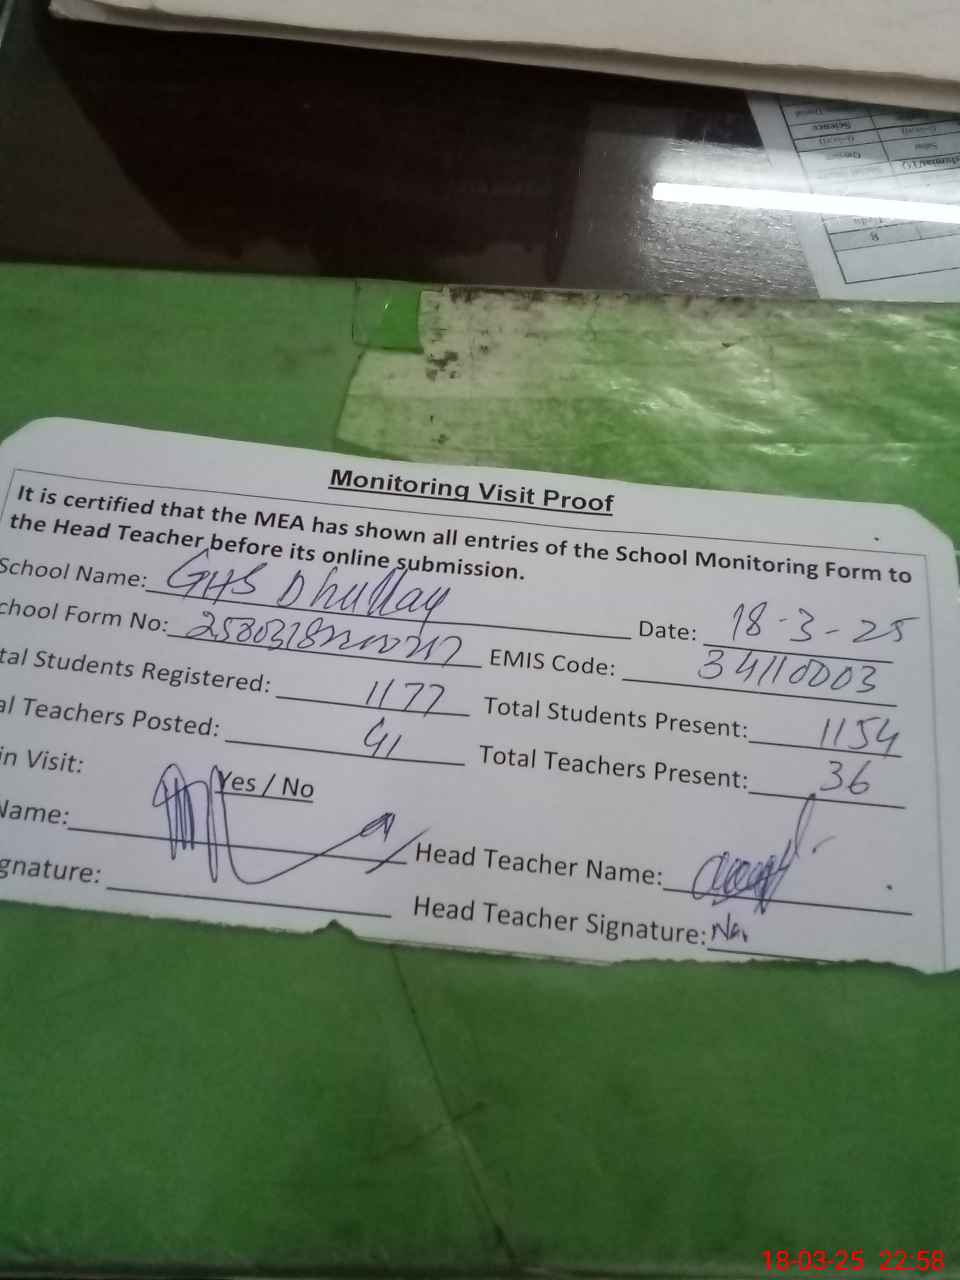 Monitoring Visit Proof
It is certified that the MEA has shown all entries of the School Monitoring Form to
the Head Teacher before its online submission.
School Name: GHS Dhullay
Date: 18-3-25
chool Form No:
EMIS Code: 34110003
tal Students Registered: 1177
Total Students Present: 1154
al Teachers Posted: 41
Total Teachers Present: 36
in Visit: Yes / No
Name:
Head Teacher Name:
gnature:
Head Teacher Signature:
Science
8
18-03-25 22:58